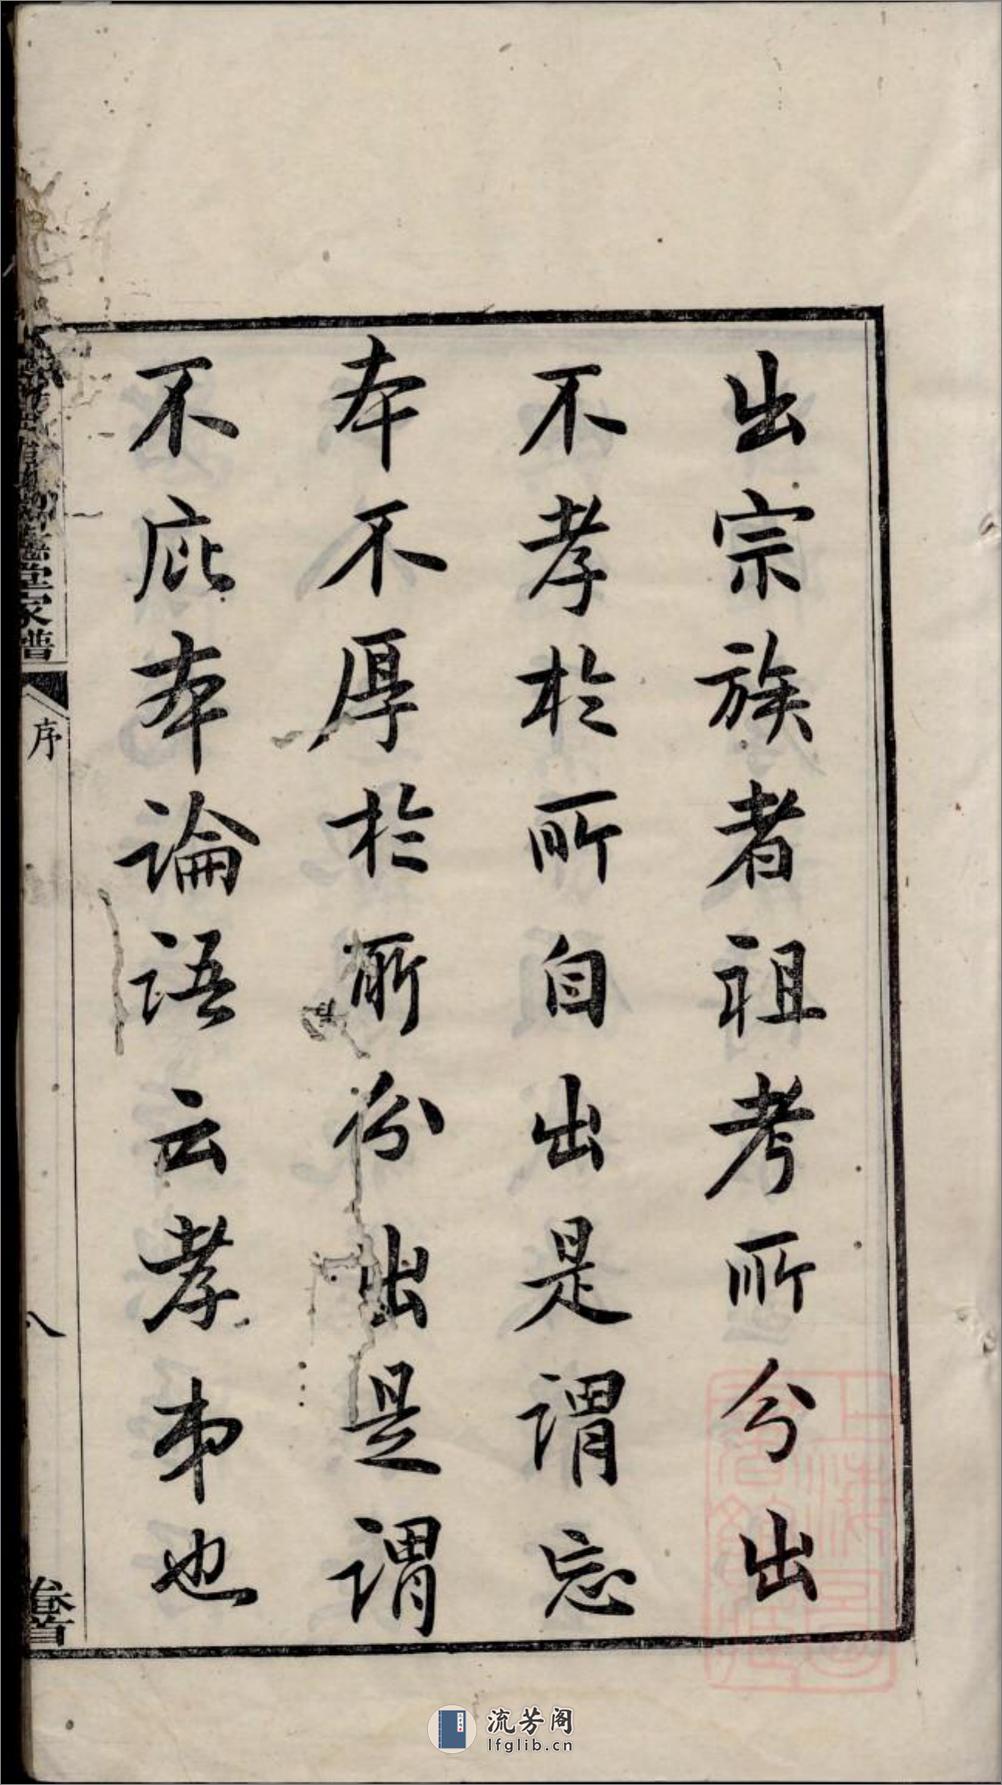 出宗族者祖考所分出
不孝於所自出是謂忘
本不厚於所分出是謂
不庇本論語云孝弟也
堂家譜
序
八
卷首
流芳阁
lfglib.cn